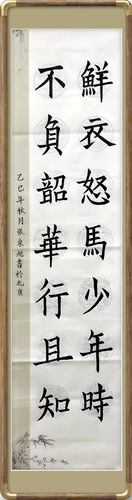 鮮衣怒馬少年時
不負韶華行且知
乙巳年秋月張東旭書於北京